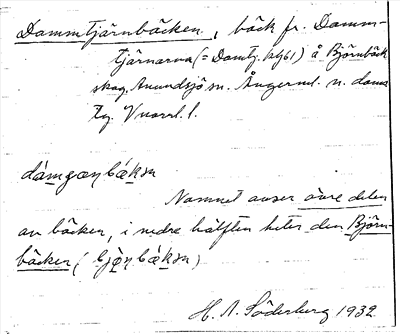 Dammtjärnbäcken, bäck fr. Damm-
tjärnarna (= Damtj. kg61) å Björnbäck
skog, Anundsjö sn. Ångerml. n. doms
Namnet avser övre delen
av bäcken, i nedre hälften heter den Björn-
bäcken (
H. A. Söderberg 1932